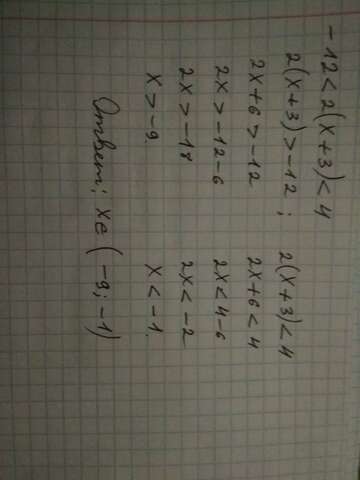 -12 < 2(x+3) < 4
2(x+3) > -12 ; 2(x+3) < 4
2x+6 > -12 2x+6 < 4
2x > -12-6 2x < 4-6
2x > -18 2x < -2
x > -9. x < -1.
Ответ: x∈(-9;-1)